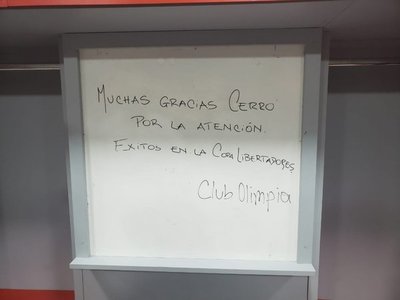 MUCHAS GRACIAS CERRO
POR LA ATENCIÓN.
EXITOS EN LA COPA LIBERTADORES
Club Olimpia